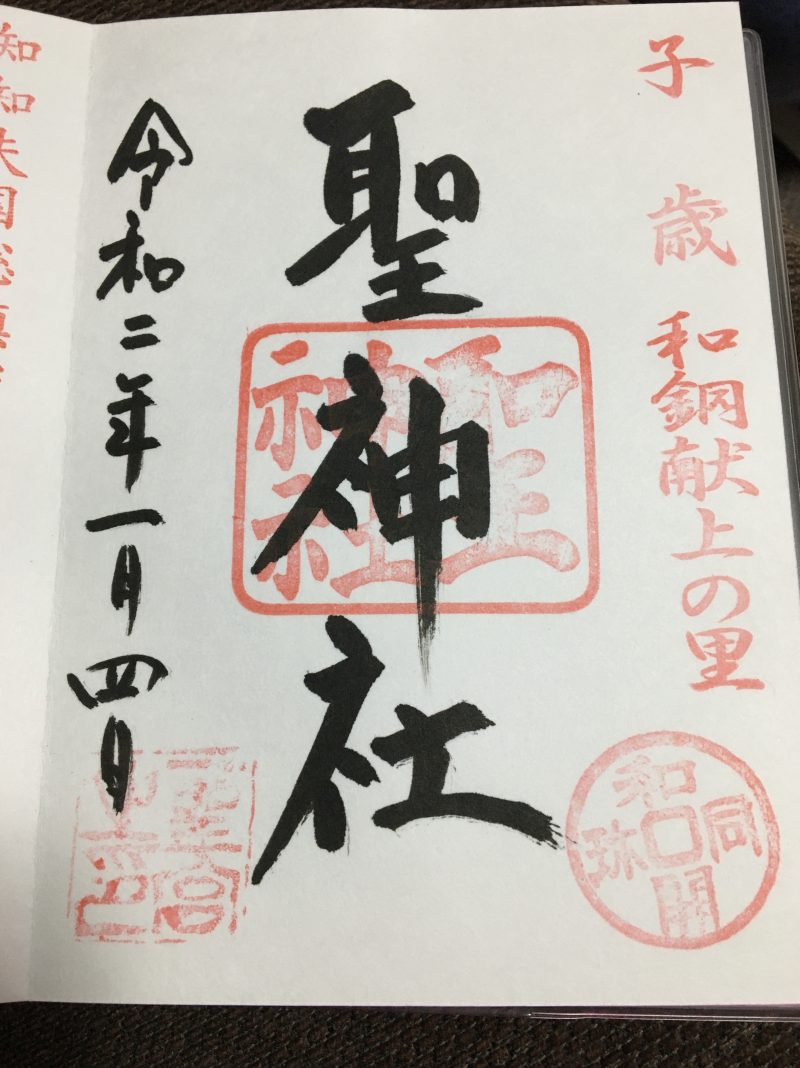 子歳
和銅献上の里
和同開珎
聖神社
聖神社
令和二年一月四日
知知夫国総鎮